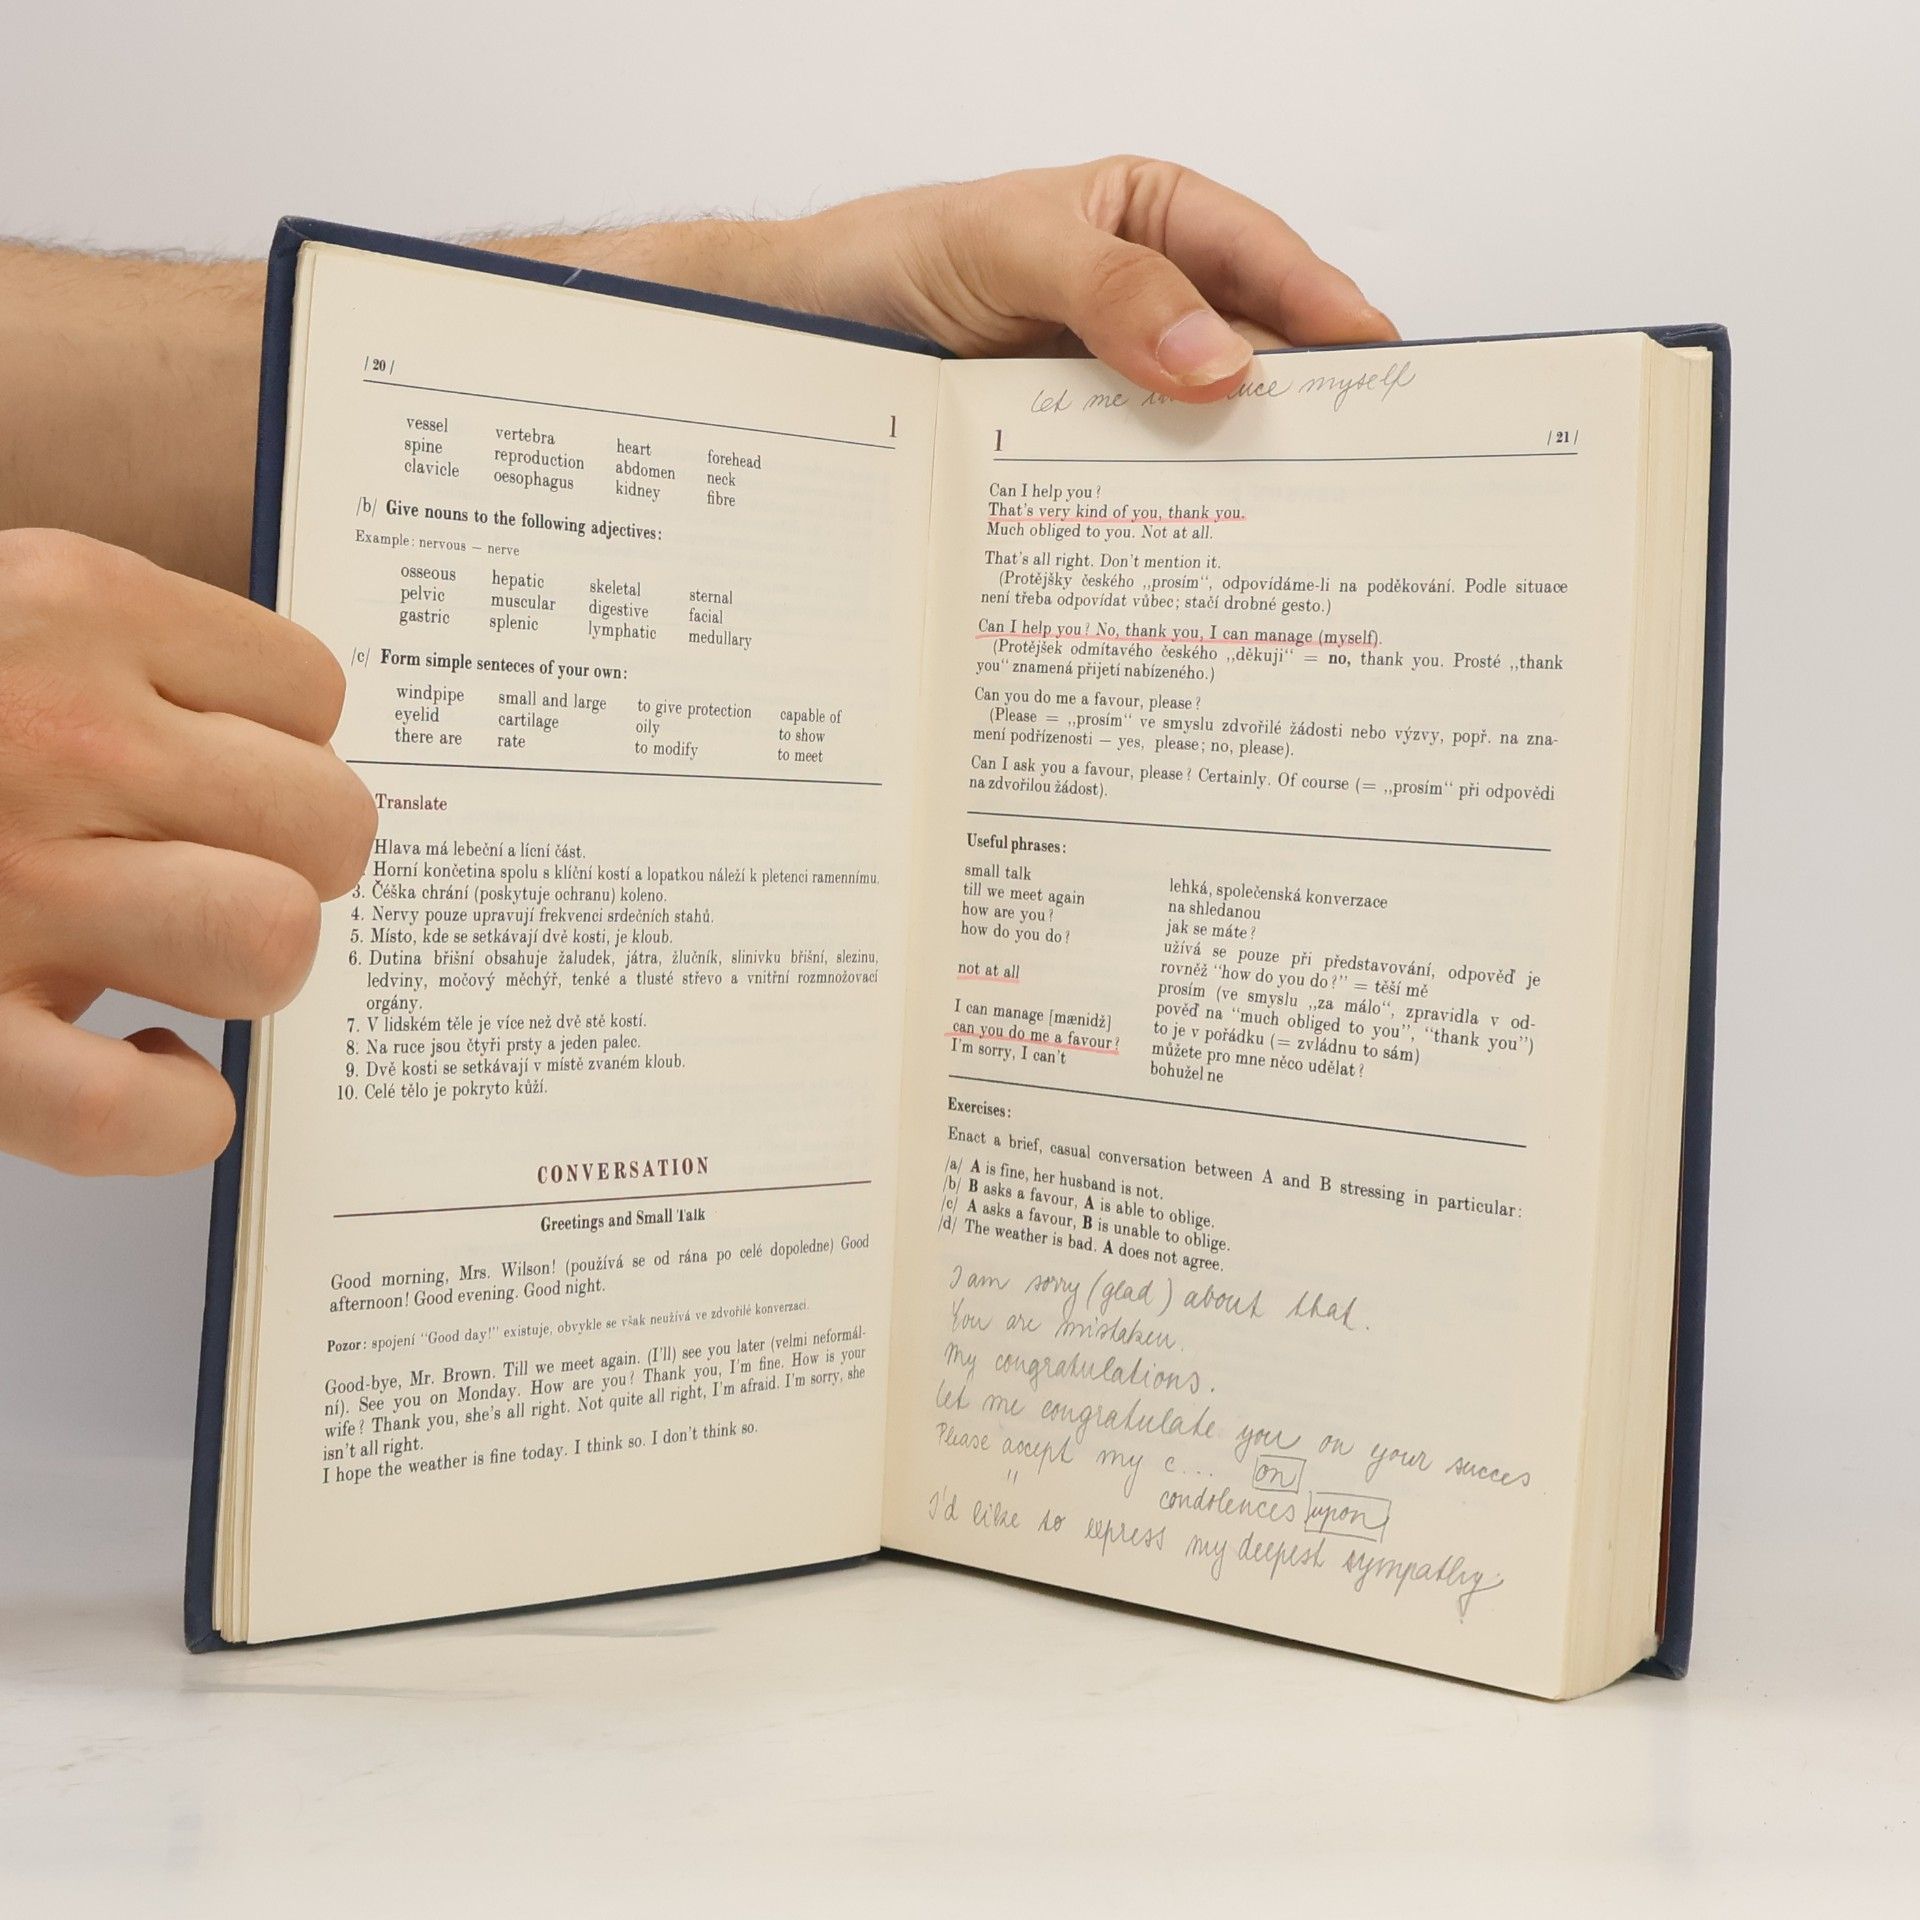 / 20 /
1
vessel vertebra heart forehead
spine reproduction abdomen neck
clavicle oesophagus kidney fibre
/b/ Give nouns to the following adjectives:
Example: nervous — nerve
osseous hepatic skeletal sternal
pelvic muscular digestive facial
gastric splenic lymphatic medullary
/c/ Form simple senteces of your own:
windpipe small and large to give protection capable of
eyelid cartilage oily to show
there are rate to modify to meet
Translate
Hlava má lebeční a lícní část.
Horní končetina spolu s klíční kostí a lopatkou náleží k pletenci ramennímu.
3. Čéška chrání (poskytuje ochranu) koleno.
4. Nervy pouze upravují frekvenci srdečních stahů.
5. Místo, kde se setkávají dvě kosti, je kloub.
6. Dutina břišní obsahuje žaludek, játra, žlučník, slinivku břišní, slezinu,
ledviny, močový měchýř, tenké a tlusté střevo a vnitřní rozmnožovací
orgány.
7. V lidském těle je více než dvě stě kostí.
8. Na ruce jsou čtyři prsty a jeden palec.
9. Dvě kosti se setkávají v místě zvaném kloub.
10. Celé tělo je pokryto kůží.
CONVERSATION
Greetings and Small Talk
Good morning, Mrs. Wilson! (používá se od rána po celé dopoledne) Good
afternoon! Good evening. Good night.
Pozor: spojení "Good day!" existuje, obvykle se však neužívá ve zdvořilé konverzaci.
Good-bye, Mr. Brown. Till we meet again. (I'll) see you later (velmi neformál-
ní). See you on Monday. How are you? Thank you, I'm fine. How is your
wife? Thank you, she's all right. Not quite all right, I'm afraid. I'm sorry, she
isn't all right.
I hope the weather is fine today. I think so. I don't think so.
let me myself
1 / 21 /
Can I help you?
That's very kind of you, thank you.
Much obliged to you. Not at all.
That's all right. Don't mention it.
(Protějšky českého „prosím“, odpovídáme-li na poděkování. Podle situace
není třeba odpovídat vůbec; stačí drobné gesto.)
Can I help you? No, thank you, I can manage (myself).
(Protějšek odmítavého českého „děkuji“ = no, thank you. Prosté „thank
you“ znamená přijetí nabízeného.)
Can you do me a favour, please?
(Please = „prosím“ ve smyslu zdvořilé žádosti nebo výzvy, popř. na zna-
mení podřízenosti — yes, please; no, please).
Can I ask you a favour, please? Certainly. Of course (= „prosím“ při odpovědi
na zdvořilou žádost).
Useful phrases:
small talk lehká, společenská konverzace
till we meet again na shledanou
how are you? jak se máte?
how do you do? užívá se pouze při představování, odpověď je
rovněž "how do you do?" = těší mě
not at all prosím (ve smyslu „za málo“, zpravidla v od-
pověď na "much obliged to you", "thank you")
I can manage [mænidž] to je v pořádku (= zvládnu to sám)
can you do me a favour? můžete pro mne něco udělat?
I'm sorry, I can't bohužel ne
Exercises:
Enact a brief, casual conversation between A and B stressing in particular:
/a/ A is fine, her husband is not.
/b/ B asks a favour, A is able to oblige.
/c/ A asks a favour, B is unable to oblige.
/d/ The weather is bad. A does not agree.
I am sorry (glad) about that.
You are mistaken.
My congratulations.
let me congratulate you on your succes
Please accept my c... on
" condolences upon
I'd like to express my deepest sympathy